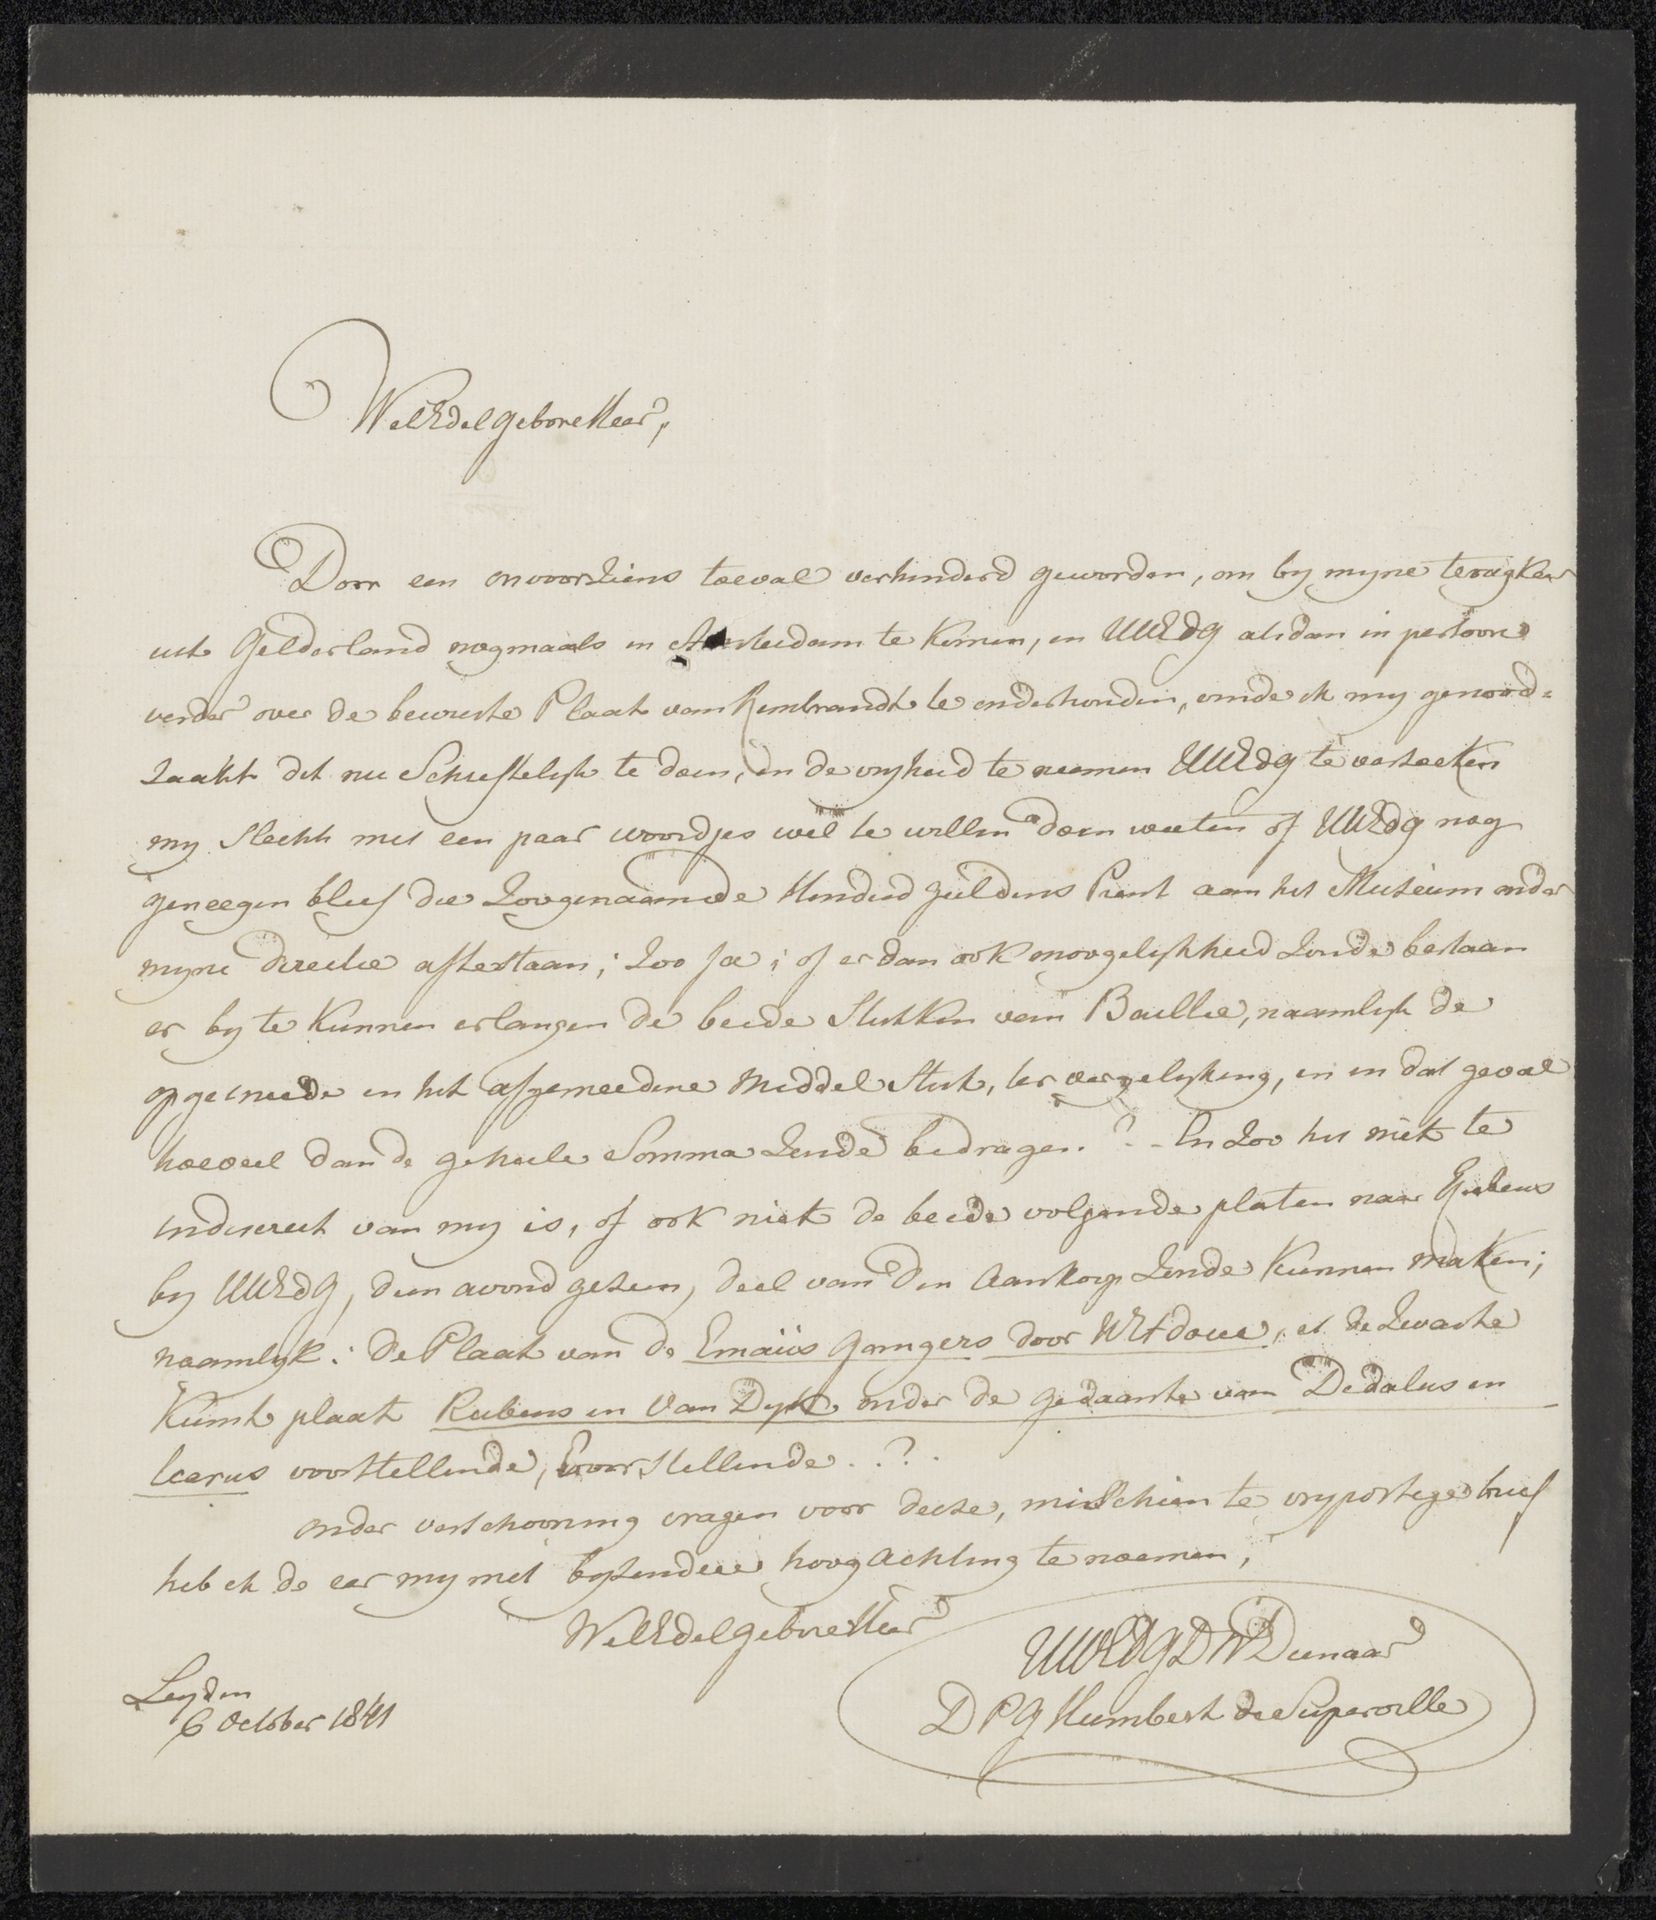 WelEdelgeboreHeer,
Door een onvoorziens toeval verhinderd geworden, om by myne terugkeer
uit Gelderland nogmaals in Amsterdam te komen, en UWEDG alsdan in persoone
verder over de bewuste Plaat van Rembrandt te onderhouden, vinde ik my genood=
zaakt dit nu Schriftelyk te doen, en de vryheid te neemen UWEDG te verzoeken
my slecht met een paar woordjes wel te willen doen weeten of UWEDG nog
geneegen bleef die Zoogenaamde Honderd guldens Prent aan het Museum onder
myne directie aftestaan; zoo ja; of er dan ook moogelykheid zoude bestaan
er by te kunnen erlangen de beide stukken van Baillie, naamlyk de
opgesneede en het afgesneedene Middel stuk, ter vergelyking, en in dat geval
hoeveel dan de geheele Somma zoude bedragen? - En zoo het niet te
indiscreet van my is, of ook niet de beide volgende platen naar Rubens
by UWEDG, dien avond gezien, deel van den Aankoop zoude kunnen maken;
naamlyk: de Plaat van de Emaüs gangers door Witdoue, et de zwarte
Kunst plaat Rubens en Van Dyk onder de gedaante van Dedalus en
Icarus voorstellende, voorstellende..?.
onder verschooning vragen voor deeze, misschien te vrypostige brief
heb ik de eer my met byzondere hoogachting te noemen,
WelEdelgeboreHeer
UWEDGDWDienaar
D P G Humbert de Superville
Leyden
6 October 1841